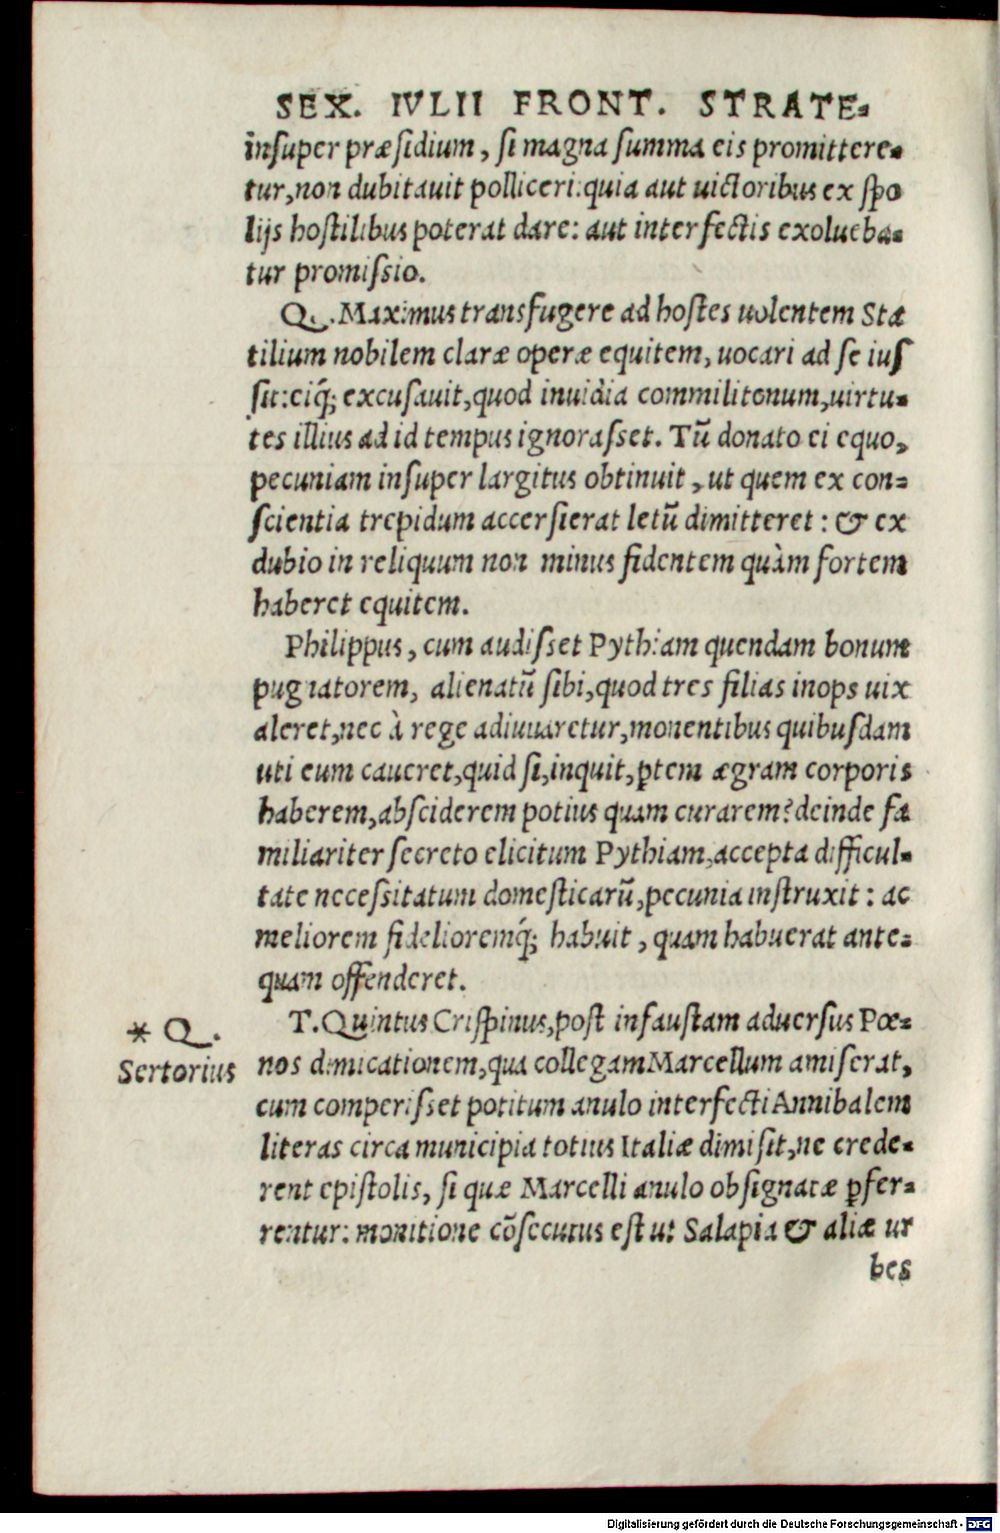 SEX. IVLII FRONT. STRATE-
insuper præsidium, si magna summa eis promittere-
tur, non dubitauit polliceri: quia aut uictoribus ex spo
lijs hostilibus poterat dare: aut interfectis exolueba-
tur promissio.
Q. Maximus transfugere ad hostes uolentem Sta
tilium nobilem claræ operæ equitem, uocari ad se ius
sit: eiq́; excusauit, quod inuidia commilitonum, uirtu-
tes illius ad id tempus ignorasset. Tũ donato ei equo,
pecuniam insuper largitus obtinuit, ut quem ex con-
scientia trepidum accersierat letũ dimitteret: & ex
dubio in reliquum non minus fidentem quàm fortem
haberet equitem.
Philippus, cum audisset Pythiam quendam bonum
pugnatorem, alienatũ sibi, quod tres filias inops uix
aleret, nec à rege adiuuaretur, monentibus quibusdam
uti eum caueret, quid si, inquit, ꝑtem ægram corporis
haberem, absciderem potius quam curarem? deinde fa
miliariter secreto elicitum Pythiam, accepta difficul-
tate necessitatum domesticarũ, pecunia instruxit: ac
meliorem fidelioremq́; habuit, quam habuerat ante-
quam offenderet.
* Q.
Sertorius
T. Quintus Crispinus, post infaustam aduersus Pœ-
nos dimicationem, qua collegam Marcellum amiserat,
cum comperisset potitum anulo interfecti Annibalem
literas circa municipia totius Italiæ dimisit, ne crede-
rent epistolis, si quæ Marcelli anulo obsignatæ ꝑfer-
rentur: monitione cõsecutus est ut Salapia & aliæ ur
bes
Digitalisierung gefördert durch die Deutsche Forschungsgemeinschaft - DFG